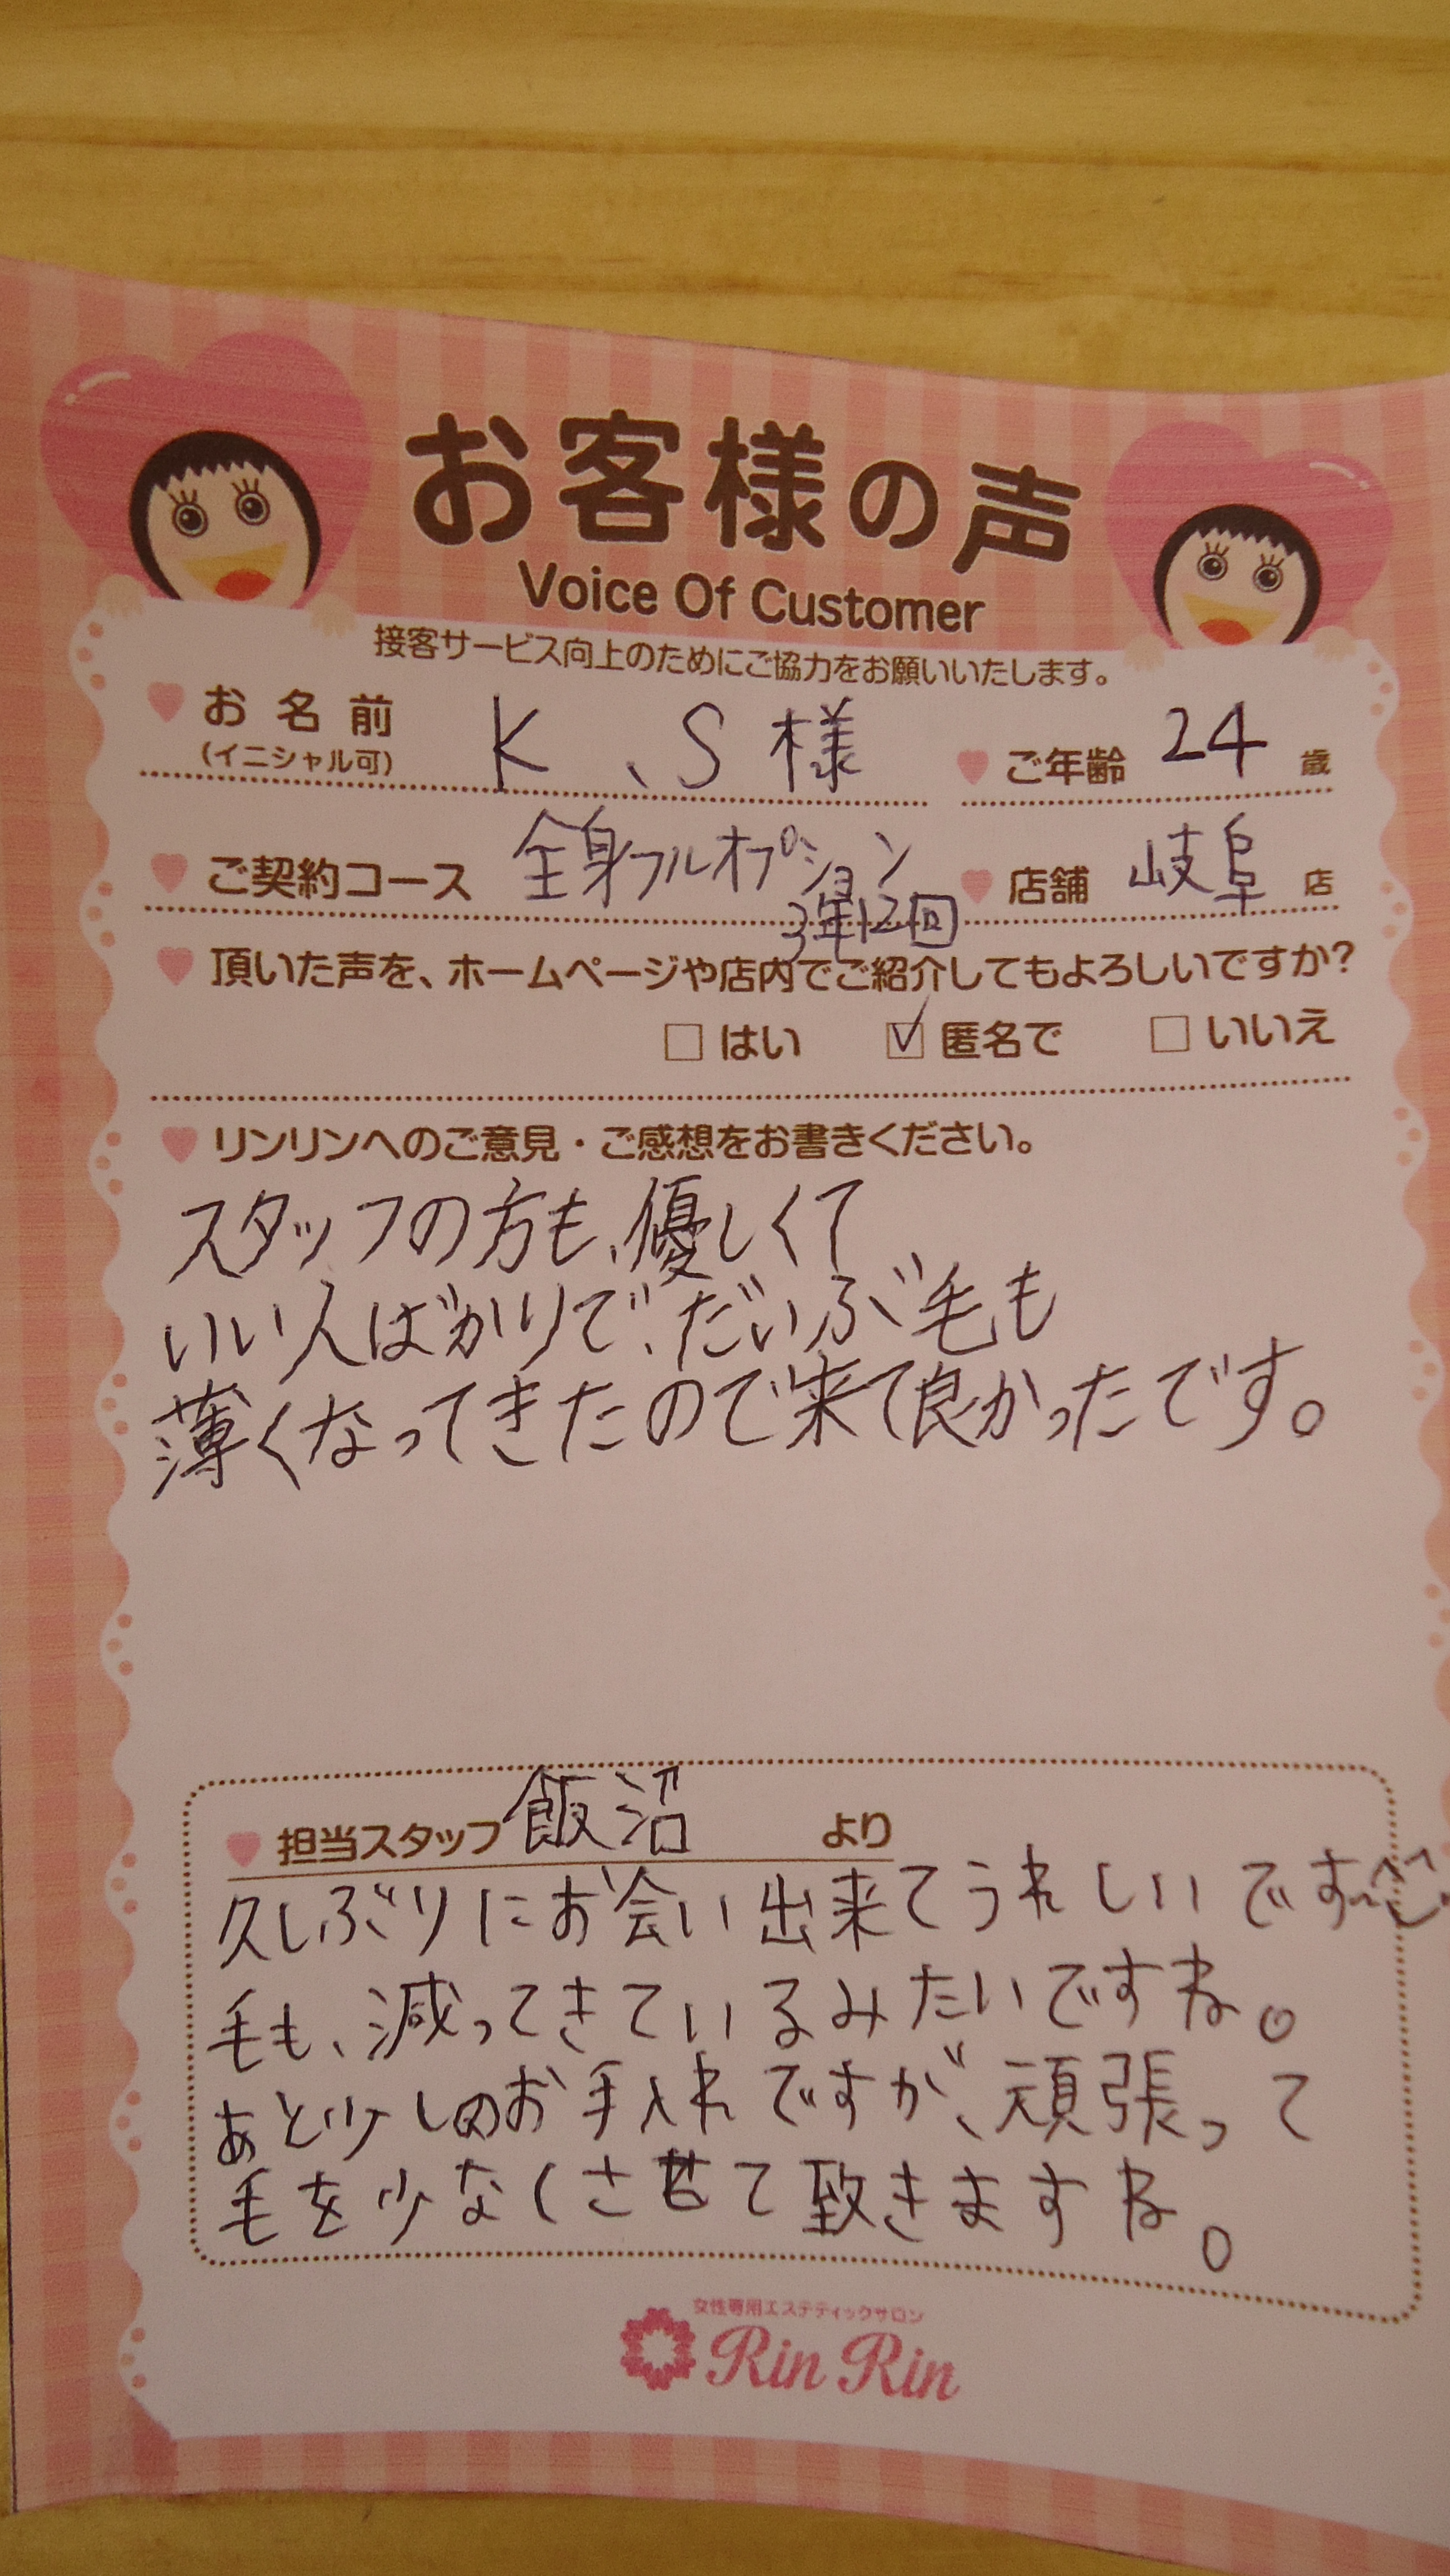 お客様の声
Voice Of Customer
接客サービス向上のためにご協力をお願いいたします。
お名前 K、S様 ご年齢 24 歳
(イニシャル可)
ご契約コース 全身フルオプション 店舗 岐阜 店
3年12回
頂いた声を、ホームページや店内でご紹介してもよろしいですか?
はい 匿名で いいえ
リンリンへのご意見・ご感想をお書きください。
スタッフの方も、優しくて
いい人ばかりで、だいぶ毛も
薄くなってきたので来て良かったです。
担当スタッフ 飯沼 より
久しぶりにお会い出来てうれしいです
毛も、減ってきているみたいですね。
あと少しのお手入れですが、頑張って
毛を少なくさせて致きますね。
女性専用エステティックサロン
Rin Rin